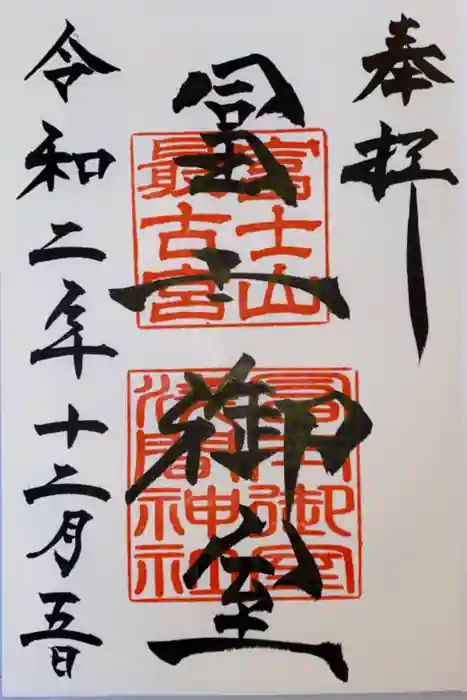 奉拝
冨士御室
富士山
最古宮
冨士御室
淺間神社
令和二年十二月五日